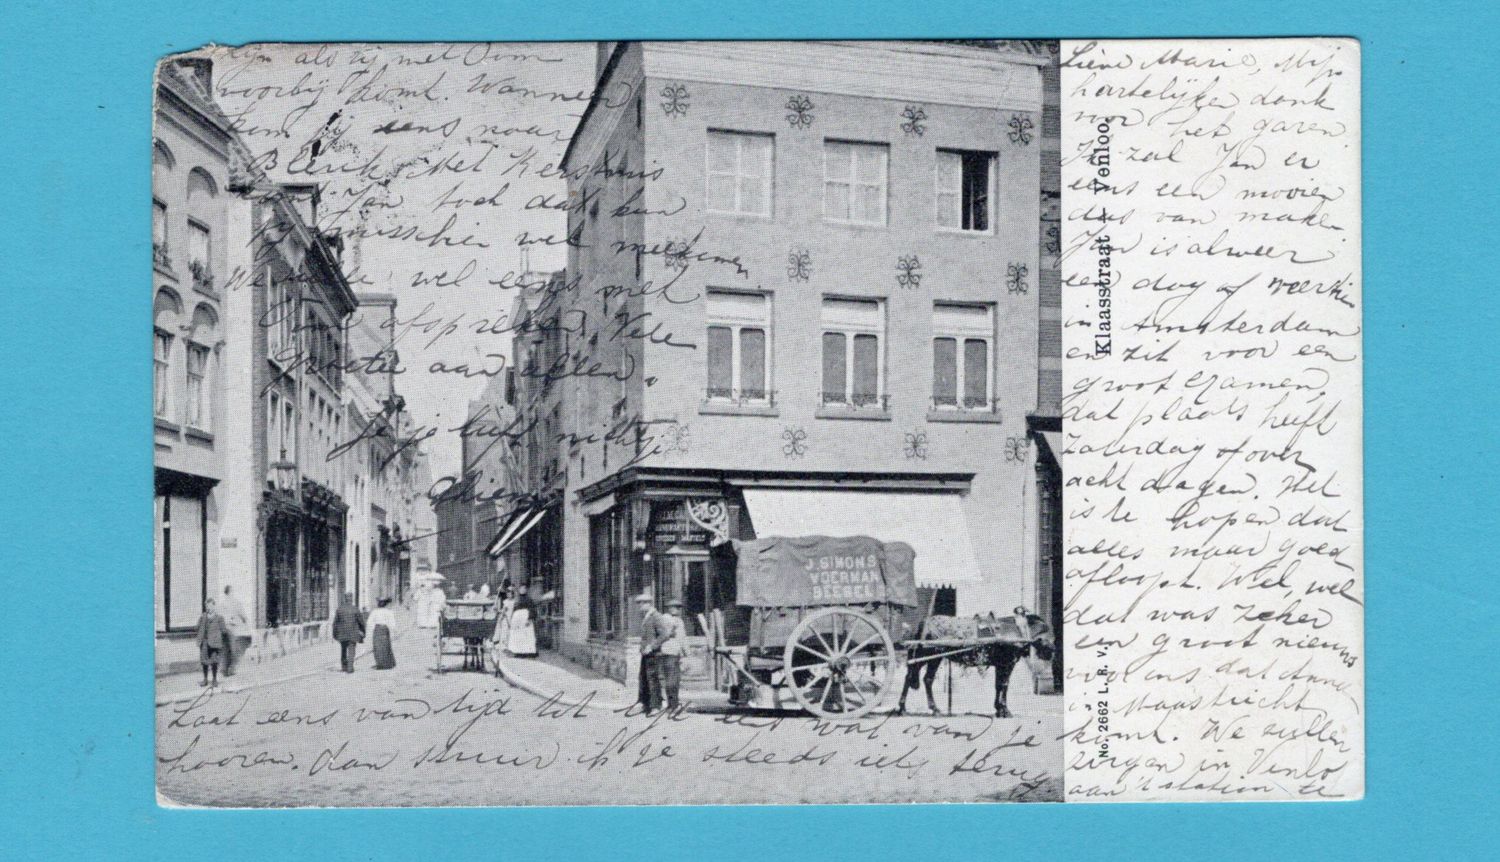 Lieve Marie, Mijn
hartelijken dank
voor het garen
Ik zal Jan er
eens een mooien
das van maken
Jan is alweer
een dag of
in Amsterdam
en zit voor een
groot examen,
dat plaats heeft
Zaterdag of over
acht dagen. Het
is te hopen dat
alles maar goed
afloopt. Wel, wel
dat was zeker
een groot nieuws
voor ons dat Anna
in Maastricht
komt. We zullen
zorgen in Venlo
aan 't station te
zijn als zij met Oom
voorbij komt. Wanneer
kom jij eens naar
Blerik. Met Kerstmis
komt Jan toch dan kun
jij misschien wel meekomen
We wel eens met
Oom afspreken. Vele
groeten aan allen.
Je je liefh. nichtje
Laat eens van tijd tot tijd iets wat van je
hooren. dan stuur ik je steeds iets terug
Klaasstraat - Venloo.
No. 2662 L. R. V.
J. SIMONS
VOERMAN
BEESEL